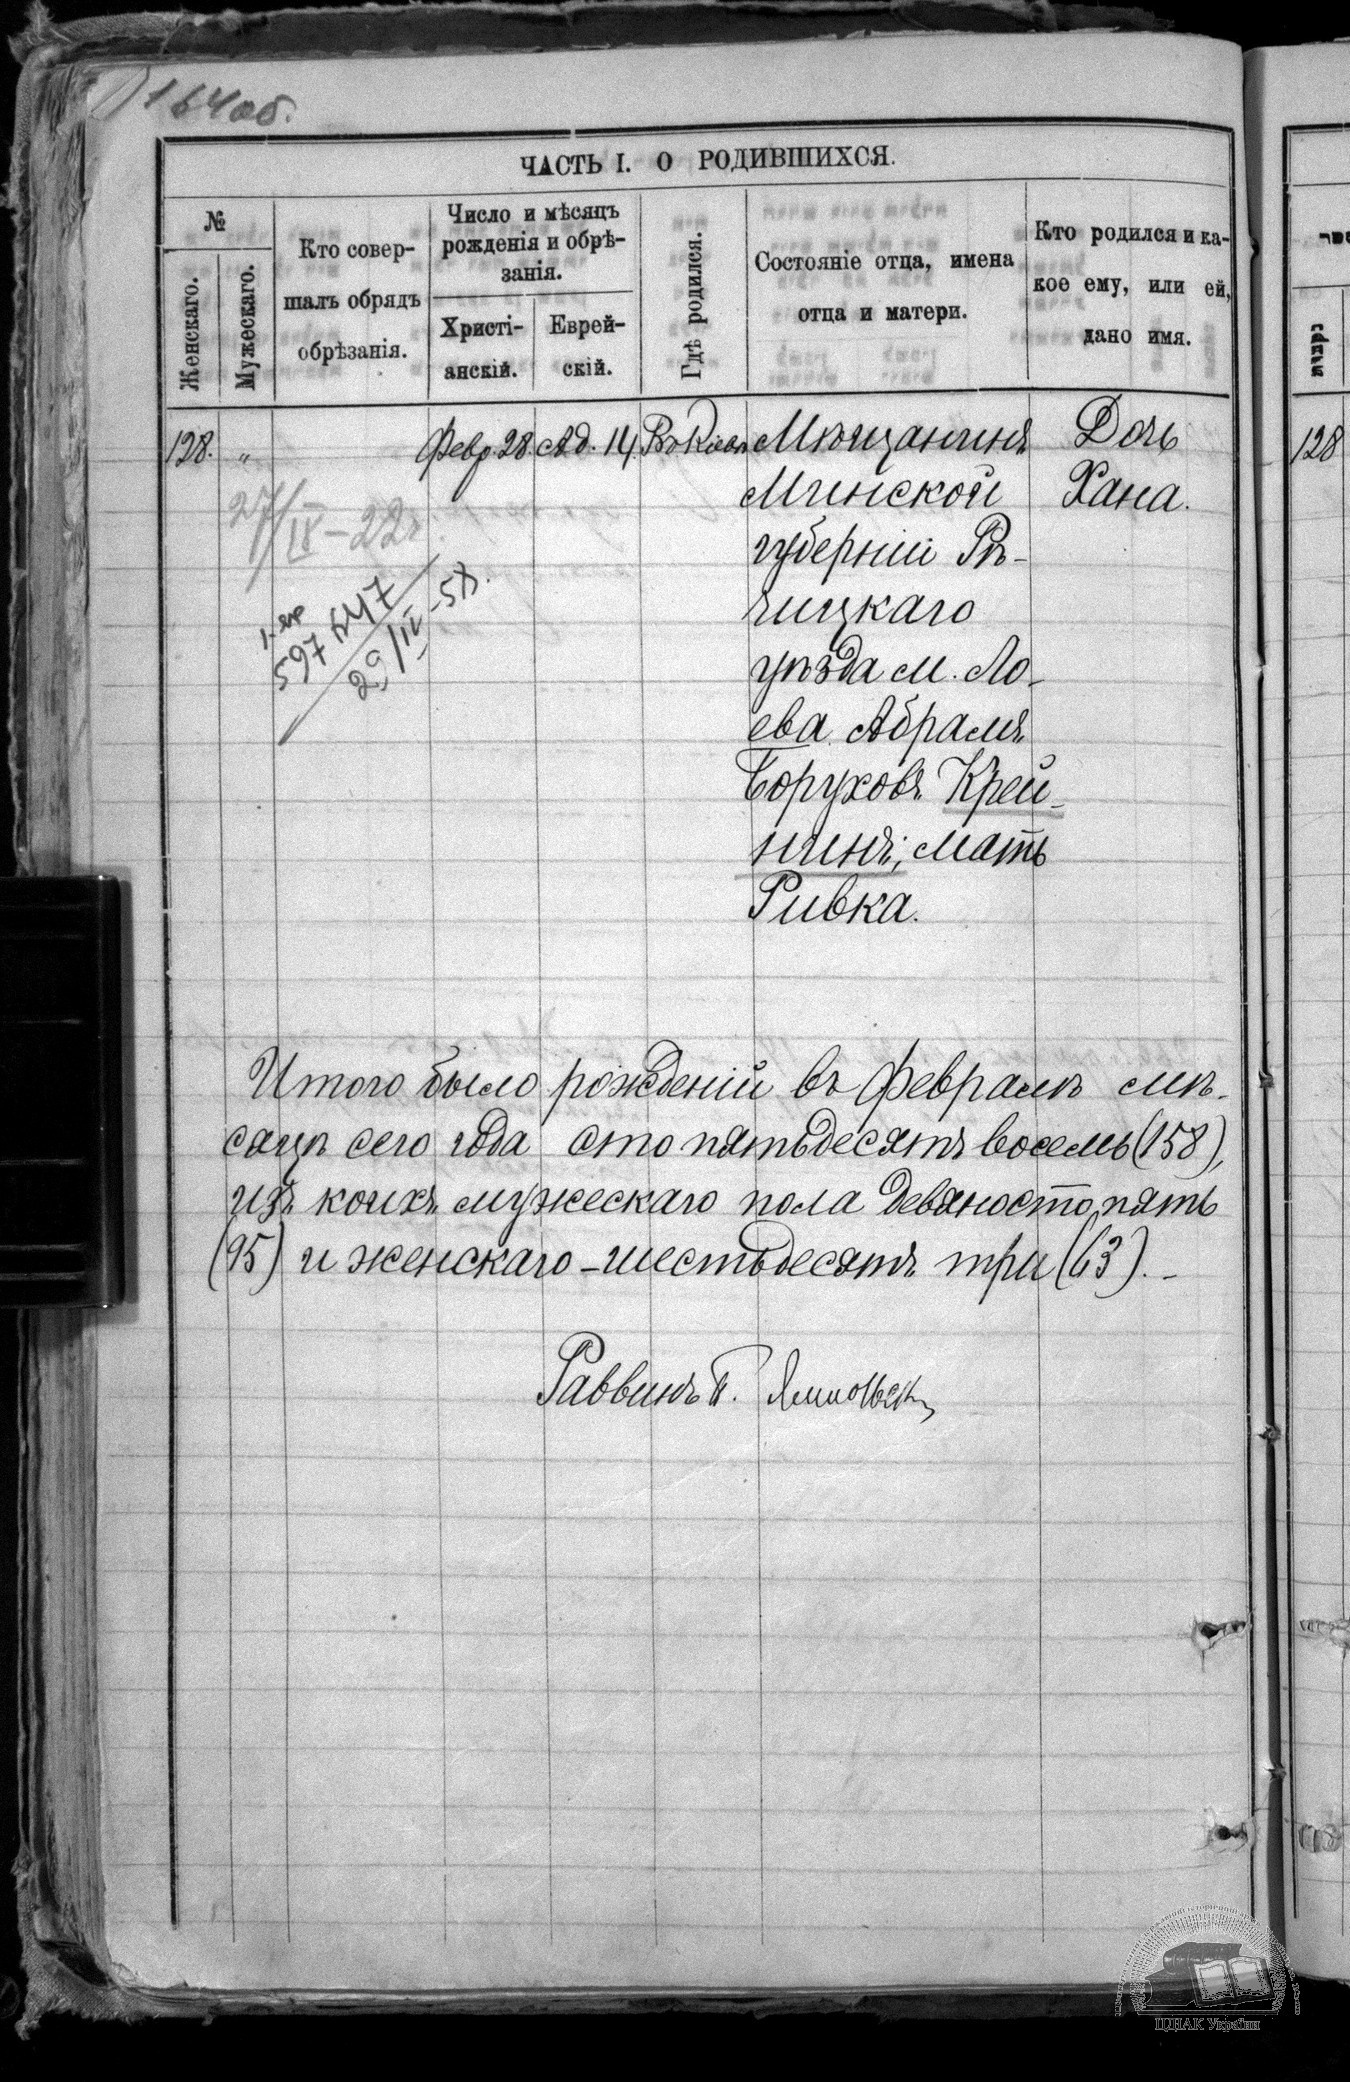 164об.
ЧАСТЬ I. О РОДИВШИХСЯ.
№
Женскаго.
Мужескаго.
Кто совер-
шалъ обрядъ
обрѣзанія.
Число и мѣсяцъ
рожденія и обрѣ-
занія.
Христі-
анскій.
Еврей-
скій.
Гдѣ родился.
Состояніе отца, имена
отца и матери.
Кто родился и ка-
кое ему, или ей,
дано имя.
128. „ Февр. 28. Ад. 14. Въ Кіевѣ Мѣщанинъ Дочь
Минской Хана.
губерніи Рѣ-
чицкаго
уѣзда м. Ло-
ева Абрамъ
Боруховъ Крей-
нинъ; мать
Ривка.
27/IX – 22г.
597647
29/IV – 58.
Итого было рожденій въ Февралѣ мѣ-
сяцѣ сего года сто пятьдесятъ восемь (158),
изъ коихъ мужескаго пола девяносто пять
(95) и женскаго – шестьдесятъ три (63). –
Раввинъ П. Ямпольскій
128
ЦДІАК України